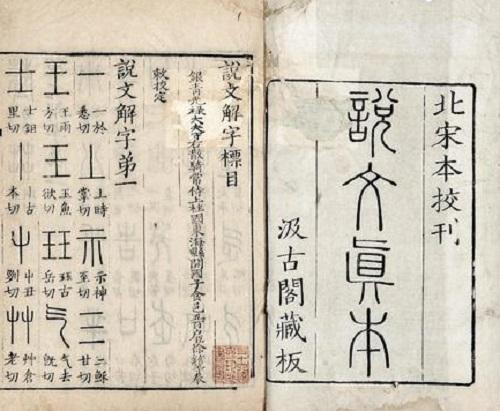 北宋本挍刊
說文眞本
汲古閣藏板
說文解字標目
銀青光祿大夫守右散騎常侍上柱國東海縣開國子食邑五百戶臣徐鉉等奉
敕挍定
說文解字第一
一 一於悉切 丄 上時掌切 示 示神至切 三 三穌甘切
王 王雨方切 玉 玉魚欲切 玨 玨古岳切 气 气去既切
士 士鉏里切 丨 丨古本切 屮 屮丑列切 艸 艸倉老切